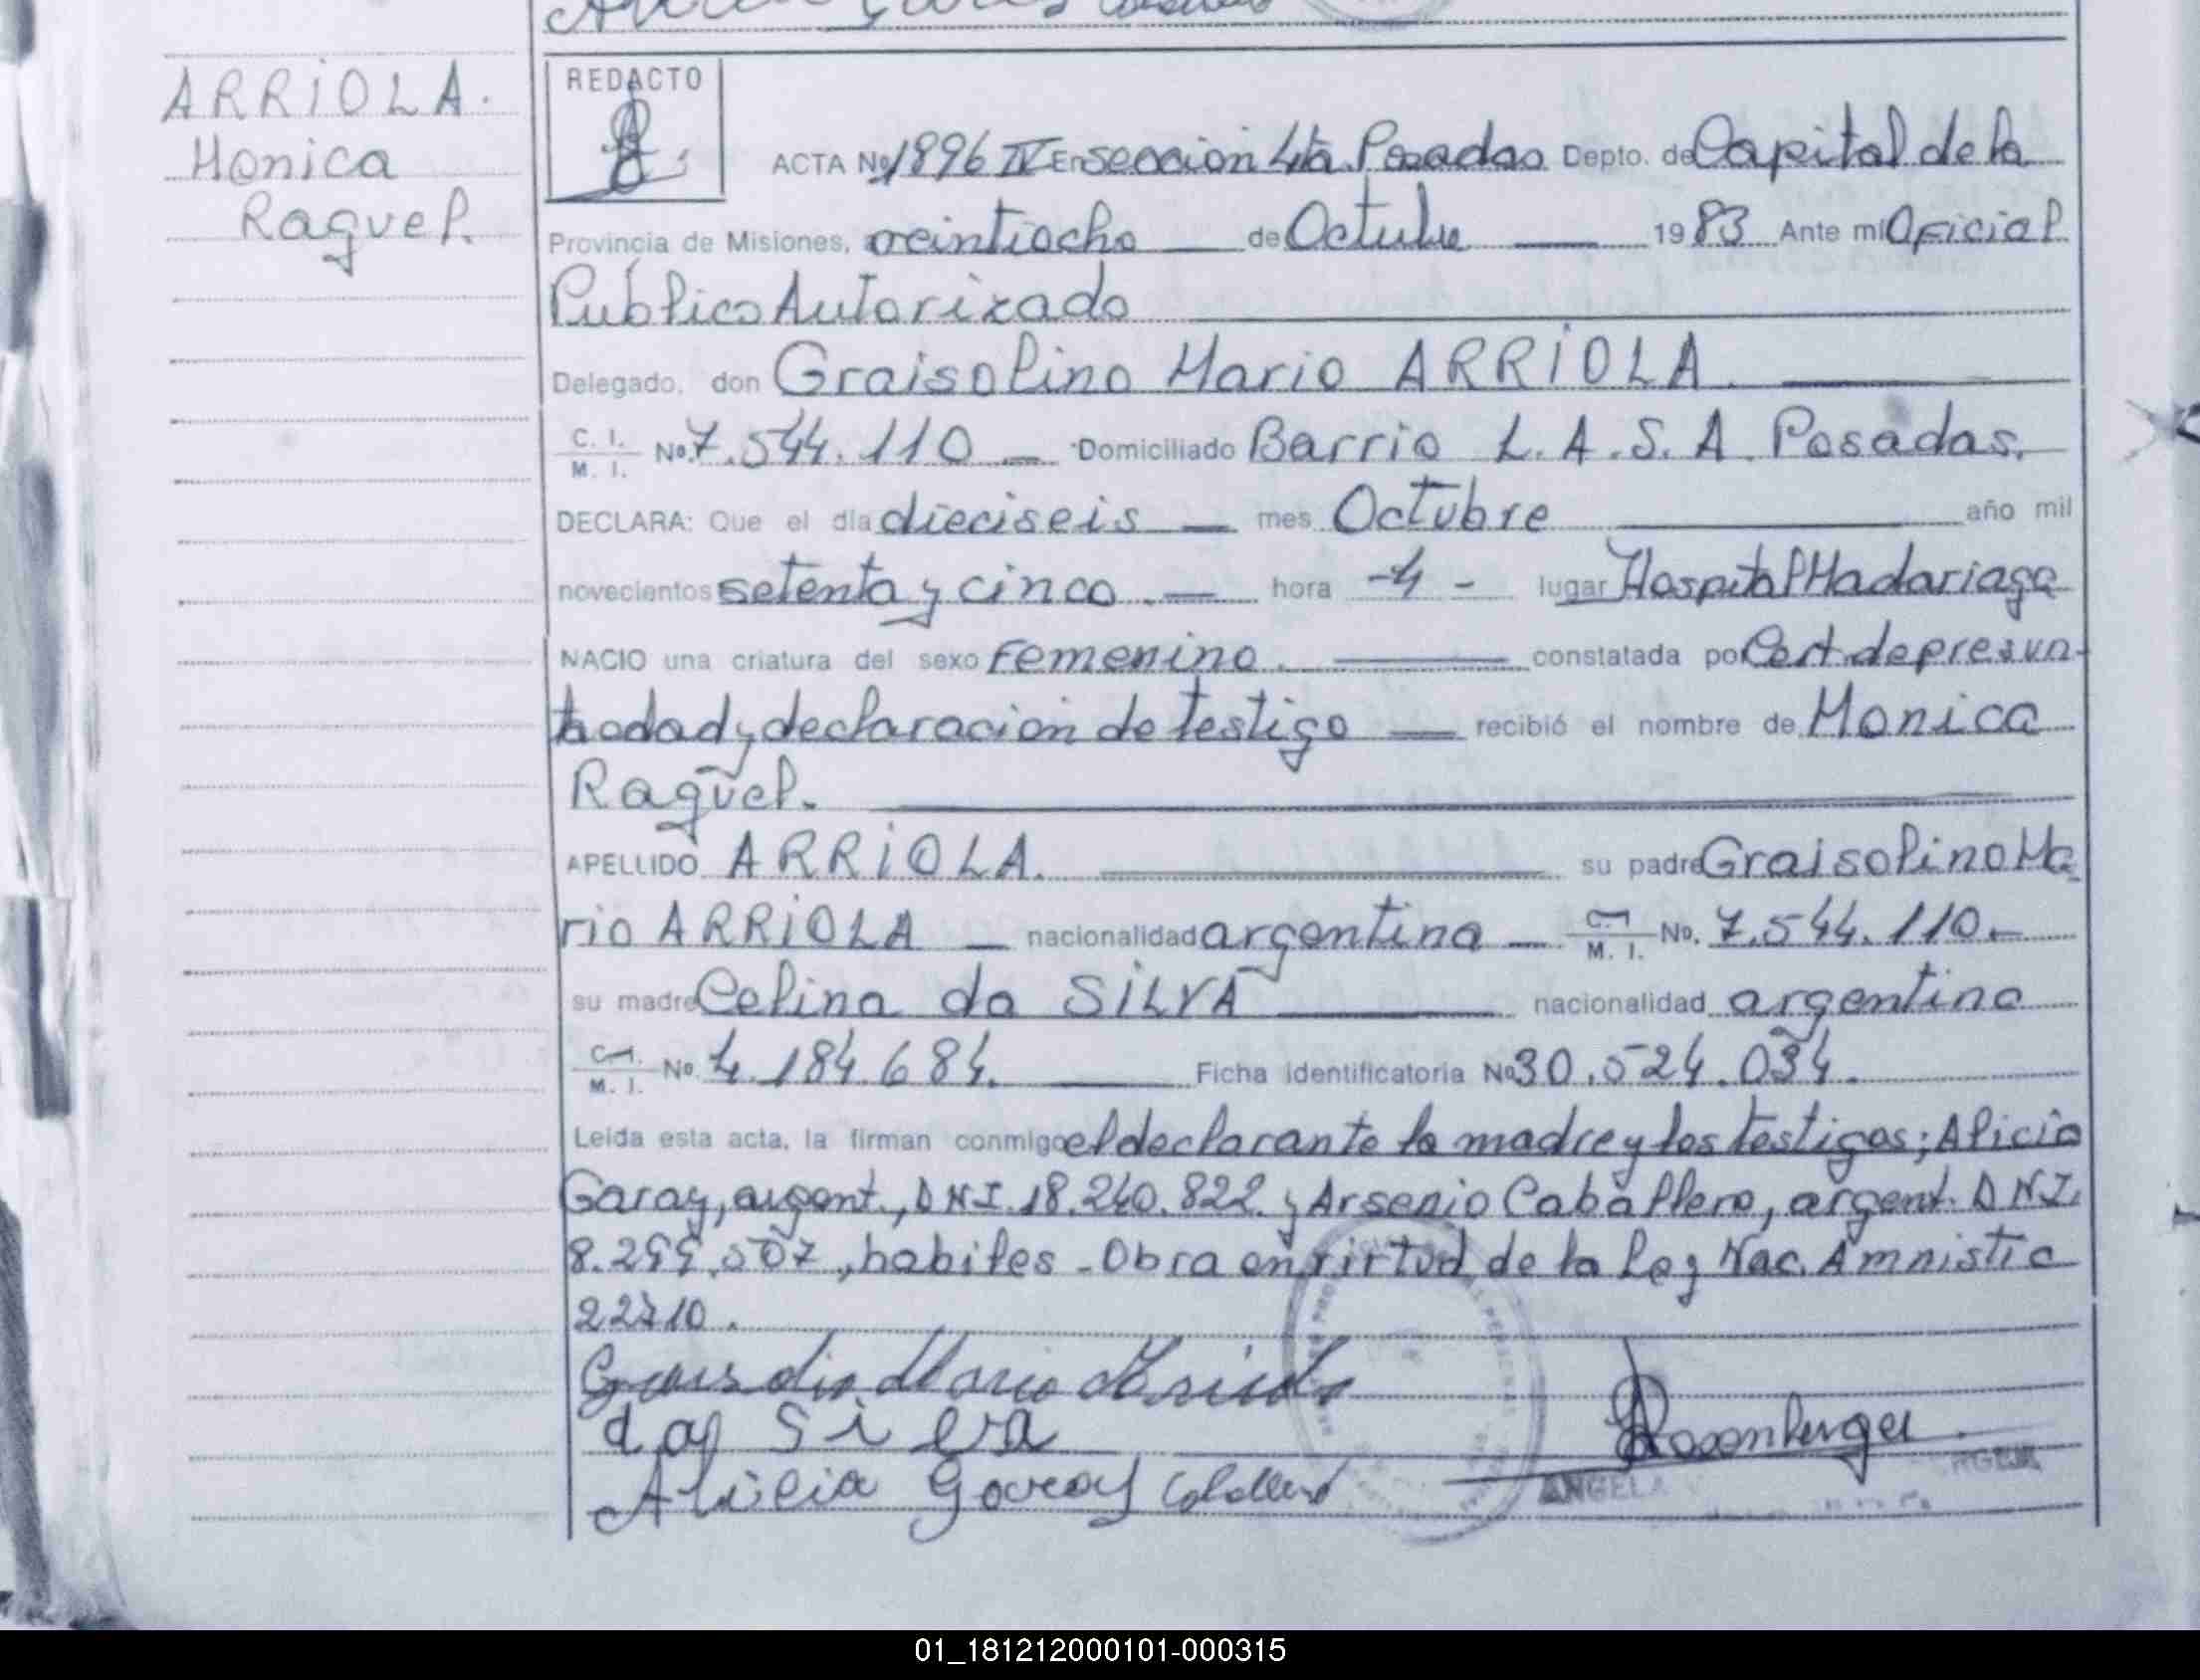 ARRIOLA.
Monica
Raquel.
REDACTO
ACTA No 1896 IV En sección 4ta. Posadas Depto. de Capital de la
Provincia de Misiones, a veintiocho de Octubre 1983 Ante mi Oficial
Público Autorizado
Delegado, don Graisolino Mario ARRIOLA.
C. I. / M. I. No. 7.544.110 Domiciliado Barrio L.A.S.A Posadas.
DECLARA: Que el día dieciseis mes Octubre año mil
novecientos setenta y cinco. hora -4- lugar Hospital Madariaga
NACIO una criatura del sexo femenino. constatada por Cert. de presun-
ta edad y declaración de testigo recibió el nombre de Monica
Raquel.
APELLIDO ARRIOLA. su padre Graisolino Ma
rio ARRIOLA nacionalidad argentina C.I. / M. I. No. 7.544.110.
su madre Celina da SILVA nacionalidad argentina
C.I. / M. I. No. 4.184.684. Ficha identificatoria No 30.524.034.
Leida esta acta, la firman conmigo el declarante la madre y los testigos; Alicia
Garay, argent., DNI. 18.240.822. y Arsenio Caballero, argent. DNI.
8.299.507, habiles - Obra en virtud de la Ley Nac. Amnistia
22410.
da Silva
Alicia Garay
Rosenberger
ANGELA
01_181212000101-000315